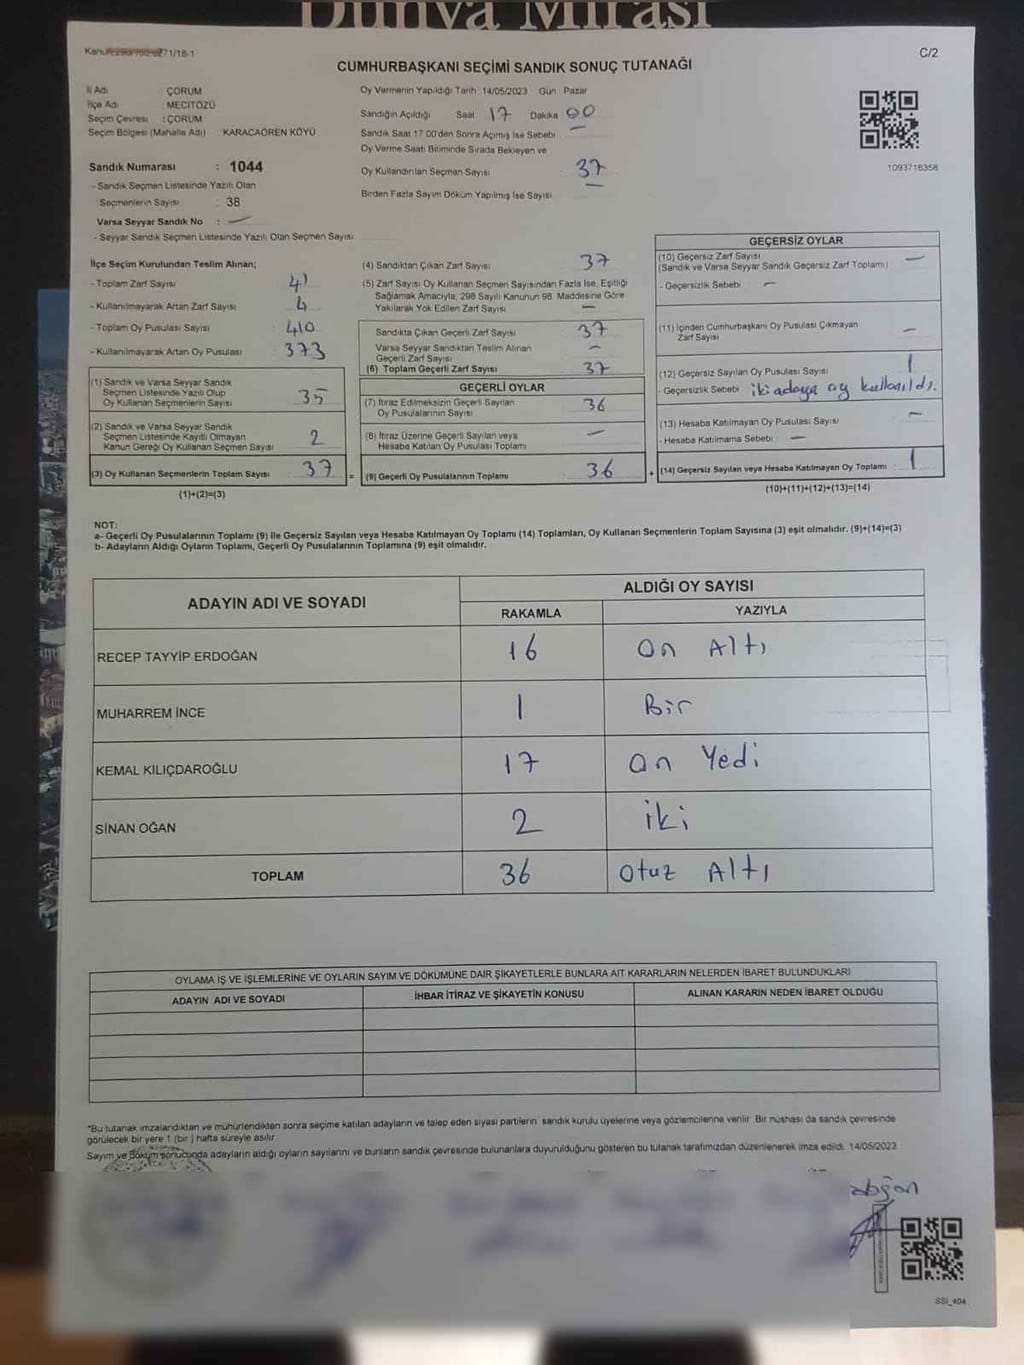 Dünya Mirası
271/18-1
C/2
CUMHURBAŞKANI SEÇİMİ SANDIK SONUÇ TUTANAĞI
İl Adı ÇORUM
İlçe Adı MECİTÖZÜ
Seçim Çevresi : ÇORUM
Seçim Bölgesi (Mahalle Adı) KARACAÖREN KÖYÜ
Sandık Numarası : 1044
- Sandık Seçmen Listesinde Yazılı Olan
Seçmenlerin Sayısı : 38
Varsa Seyyar Sandık No : —
- Seyyar Sandık Seçmen Listesinde Yazılı Olan Seçmen Sayısı
Oy Vermenin Yapıldığı Tarih 14/05/2023 Gün Pazar
Sandığın Açıldığı Saat 17 Dakika 00
Sandık Saat 17:00'den Sonra Açımış İse Sebebi —
Oy Verme Saati Bitiminde Sırada Bekleyen ve
Oy Kullandırılan Seçmen Sayısı 37
Birden Fazla Sayım Döküm Yapılmış İse Sayısı —
1093718358
İlçe Seçim Kurulundan Teslim Alınan;
- Toplam Zarf Sayısı 41
- Kullanılmayarak Artan Zarf Sayısı 4
- Toplam Oy Pusulası Sayısı 410
- Kullanılmayarak Artan Oy Pusulası 373
(1) Sandık ve Varsa Seyyar Sandık
Seçmen Listesinde Yazılı Olup
Oy Kullanan Seçmenlerin Sayısı 35
(2) Sandık ve Varsa Seyyar Sandık
Seçmen Listesinde Kayıtlı Olmayan
Kanun Gereği Oy Kullanan Seçmen Sayısı 2
(3) Oy Kullanan Seçmenlerin Toplam Sayısı : 37 =
(1)+(2)=(3)
(4) Sandıktan Çıkan Zarf Sayısı 37
(5) Zarf Sayısı Oy Kullanan Seçmen Sayısından Fazla İse, Eşitliği
Sağlamak Amacıyla, 298 Sayılı Kanunun 98. Maddesine Göre
Yakılarak Yok Edilen Zarf Sayısı —
Sandıkta Çıkan Geçerli Zarf Sayısı 37
Varsa Seyyar Sandıktan Teslim Alınan
Geçerli Zarf Sayısı —
(6) Toplam Geçerli Zarf Sayısı 37
GEÇERLİ OYLAR
(7) İtiraz Edilmeksizin Geçerli Sayılan
Oy Pusulalarının Sayısı 36
(8) İtiraz Üzerine Geçerli Sayılan veya
Hesaba Katılan Oy Pusulası Toplamı —
(9) Geçerli Oy Pusulalarının Toplamı 36 +
GEÇERSİZ OYLAR
(10) Geçersiz Zarf Sayısı —
(Sandık ve Varsa Seyyar Sandık Geçersiz Zarf Toplamı)
- Geçersizlik Sebebi —
(11) İçinden Cumhurbaşkanı Oy Pusulası Çıkmayan
Zarf Sayısı —
(12) Geçersiz Sayılan Oy Pusulası Sayısı 1
- Geçersizlik Sebebi iki adaya oy kullanıldı.
(13) Hesaba Katılmayan Oy Pusulası Sayısı —
- Hesaba Katılmama Sebebi —
(14) Geçersiz Sayılan veya Hesaba Katılmayan Oy Toplamı 1
(10)+(11)+(12)+(13)=(14)
NOT:
a- Geçerli Oy Pusulalarının Toplamı (9) ile Geçersiz Sayılan veya Hesaba Katılmayan Oy Toplamı (14) Toplamları, Oy Kullanan Seçmenlerin Toplam Sayısına (3) eşit olmalıdır. (9)+(14)=(3)
b- Adayların Aldığı Oyların Toplamı, Geçerli Oy Pusulalarının Toplamına (9) eşit olmalıdır.
ADAYIN ADI VE SOYADI ALDIĞI OY SAYISI
RAKAMLA YAZIYLA
RECEP TAYYİP ERDOĞAN 16 On Altı
MUHARREM İNCE 1 Bir
KEMAL KILIÇDAROĞLU 17 On Yedi
SİNAN OĞAN 2 iki
TOPLAM 36 Otuz Altı
OYLAMA İŞ VE İŞLEMLERİNE VE OYLARIN SAYIM VE DÖKÜMÜNE DAİR ŞİKAYETLERLE BUNLARA AİT KARARLARIN NELERDEN İBARET BULUNDUKLARI
ADAYIN ADI VE SOYADI İHBAR İTİRAZ VE ŞİKAYETİN KONUSU ALINAN KARARIN NEDEN İBARET OLDUĞU
*Bu tutanak imzalandıktan ve mühürlendikten sonra seçime katılan adayların ve talep eden siyasi partilerin sandık kurulu üyelerine veya gözlemcilerine verilir. Bir nüshası da sandık çevresinde
görülecek bir yere 1 (bir) hafta süreyle asılır.
Sayım ve döküm sonucunda adayların aldığı oyların sayılarını ve bunların sandık çevresinde bulunanlara duyurulduğunu gösteren bu tutanak tarafımızdan düzenlenerek imza edildi. 14/05/2023
SSI_404